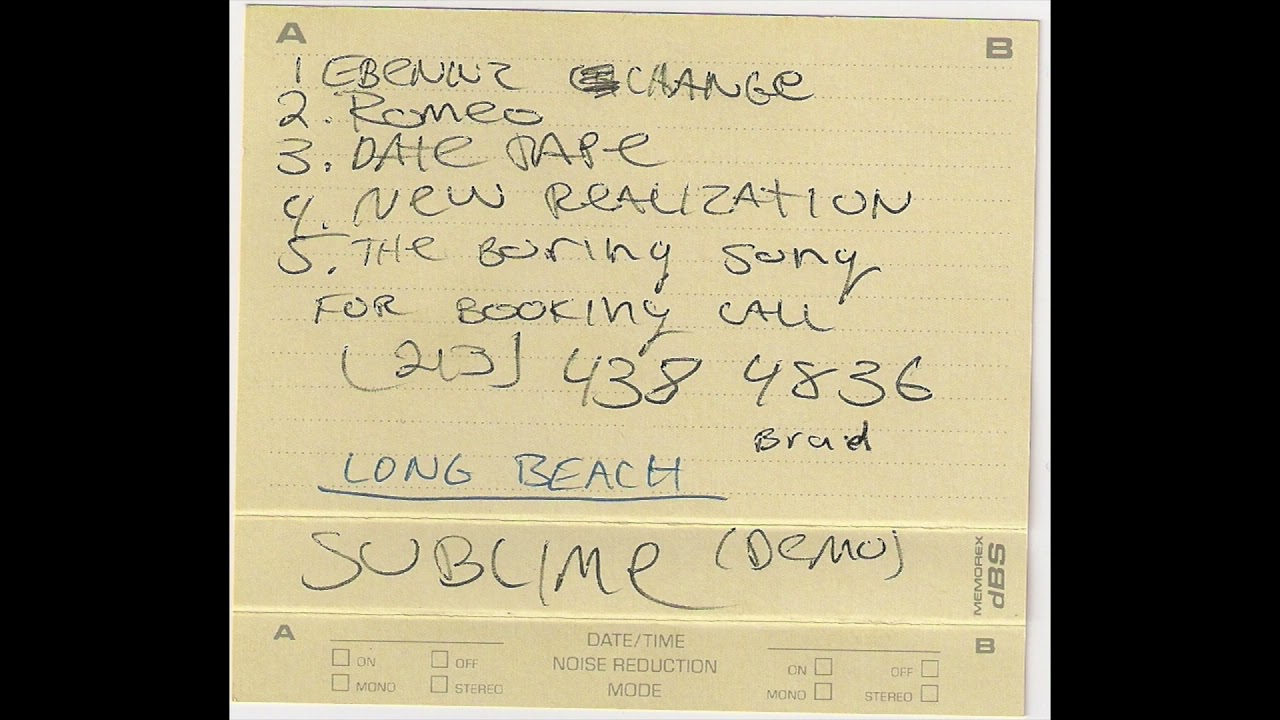 A B
1 EBENINZ CHANGE
2. ROMEO
3. DATE RAPE
4. NEW REALIZATION
5. THE BORING SONG
FOR BOOKING CALL
(213) 438 4836
Brad
LONG BEACH
SUBLIME (DEMO)
MEMOREX
dBS
A DATE/TIME B
ON OFF NOISE REDUCTION ON OFF
MONO STEREO MODE MONO STEREO